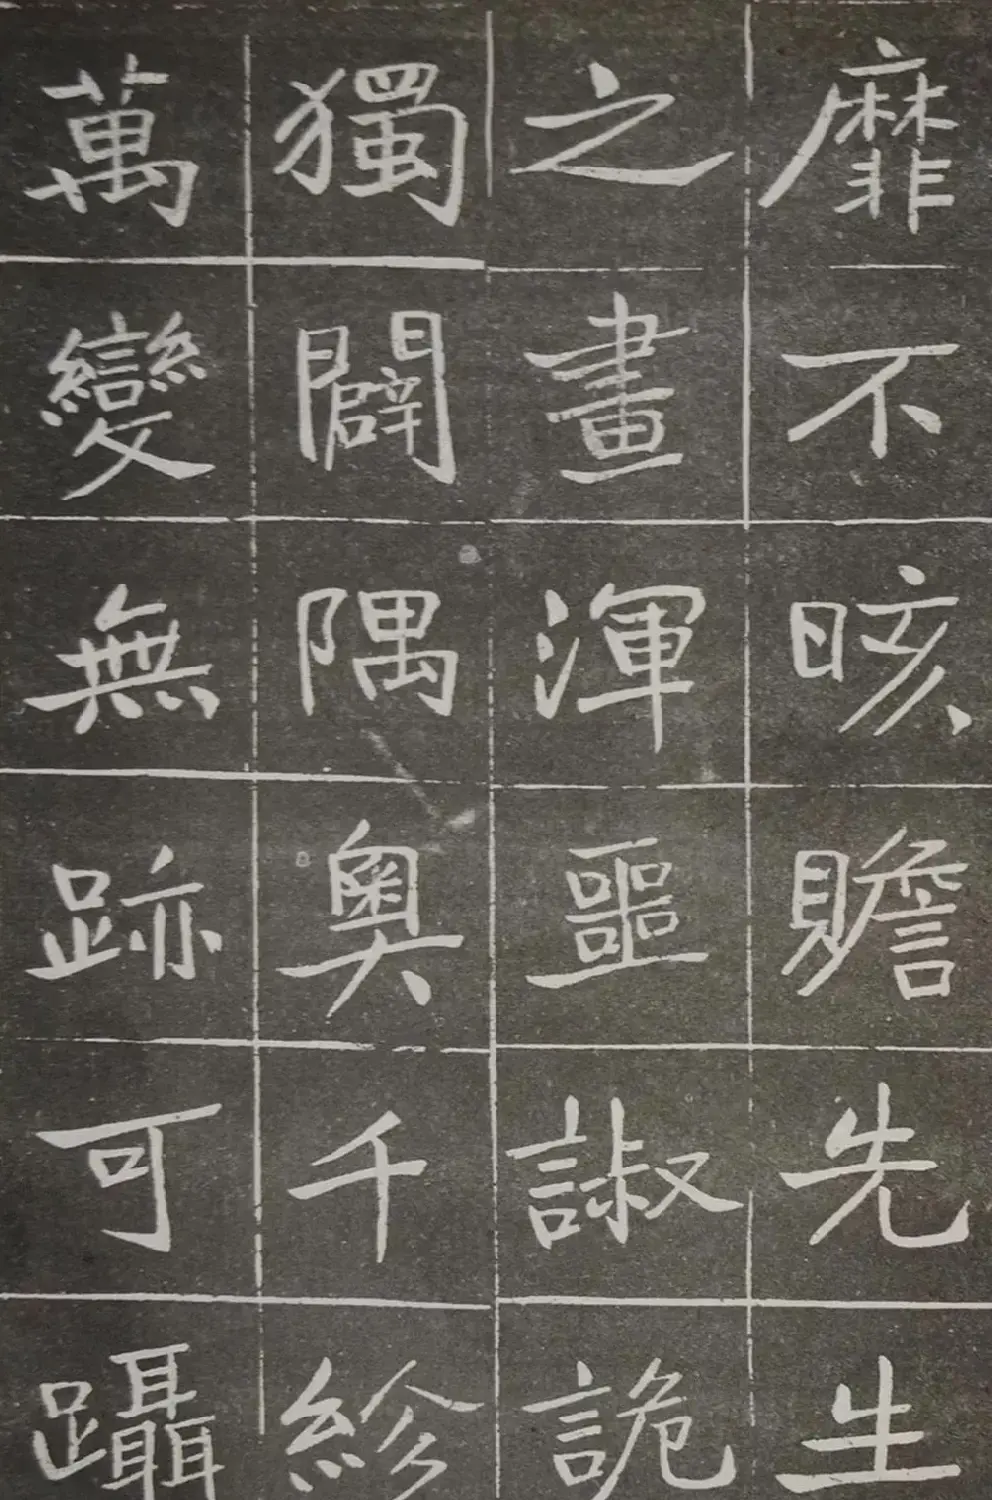 靡不晐贍先生
之畫渾噩諔詭
獨闢隅奧千紾
萬變無跡可躡